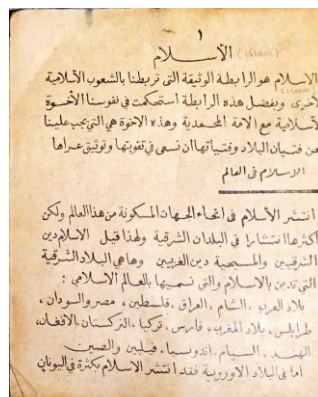 ١
الأسلام
الاسلام هو الرابطة الوثيقة التي تربطنا بالشعوب الأسلامية
أخرى وبفضل هذه الرابطة استحكمت في نفوسنا الأخوة
لأسلامية مع الامة المحمدية وهذه الاخوة هي التي يجب علينا
نحن فتيان البلاد وفتياتها ان نسعى في تقويتها وتوثيق عراها
الاسلام في العالم
انتشر الأسلام في انحاء الجهات المسكونة من هذا العالم ولكن
اكثرها انتشارا في البلدان الشرقية ولهذا قيل الاسلام دين
الشرقيين والمسيحية دين الغربيين وها هي البلاد الشرقية
التي تدين بالاسلام والتي نسميها بالعالم الاسلامي :
بلاد العرب ، الشام ، العراق ، فلسطين ، مصر والسودان ،
طرابلس ، بلاد المغرب ، فارس ، تركيا ، التركستان ، الافغان ،
الهند ، السيام ، اندونسيا ، فيلبين والصين
اما في البلاد الاوروبية فقد انتشر الاسلام بكثرة في اليونان